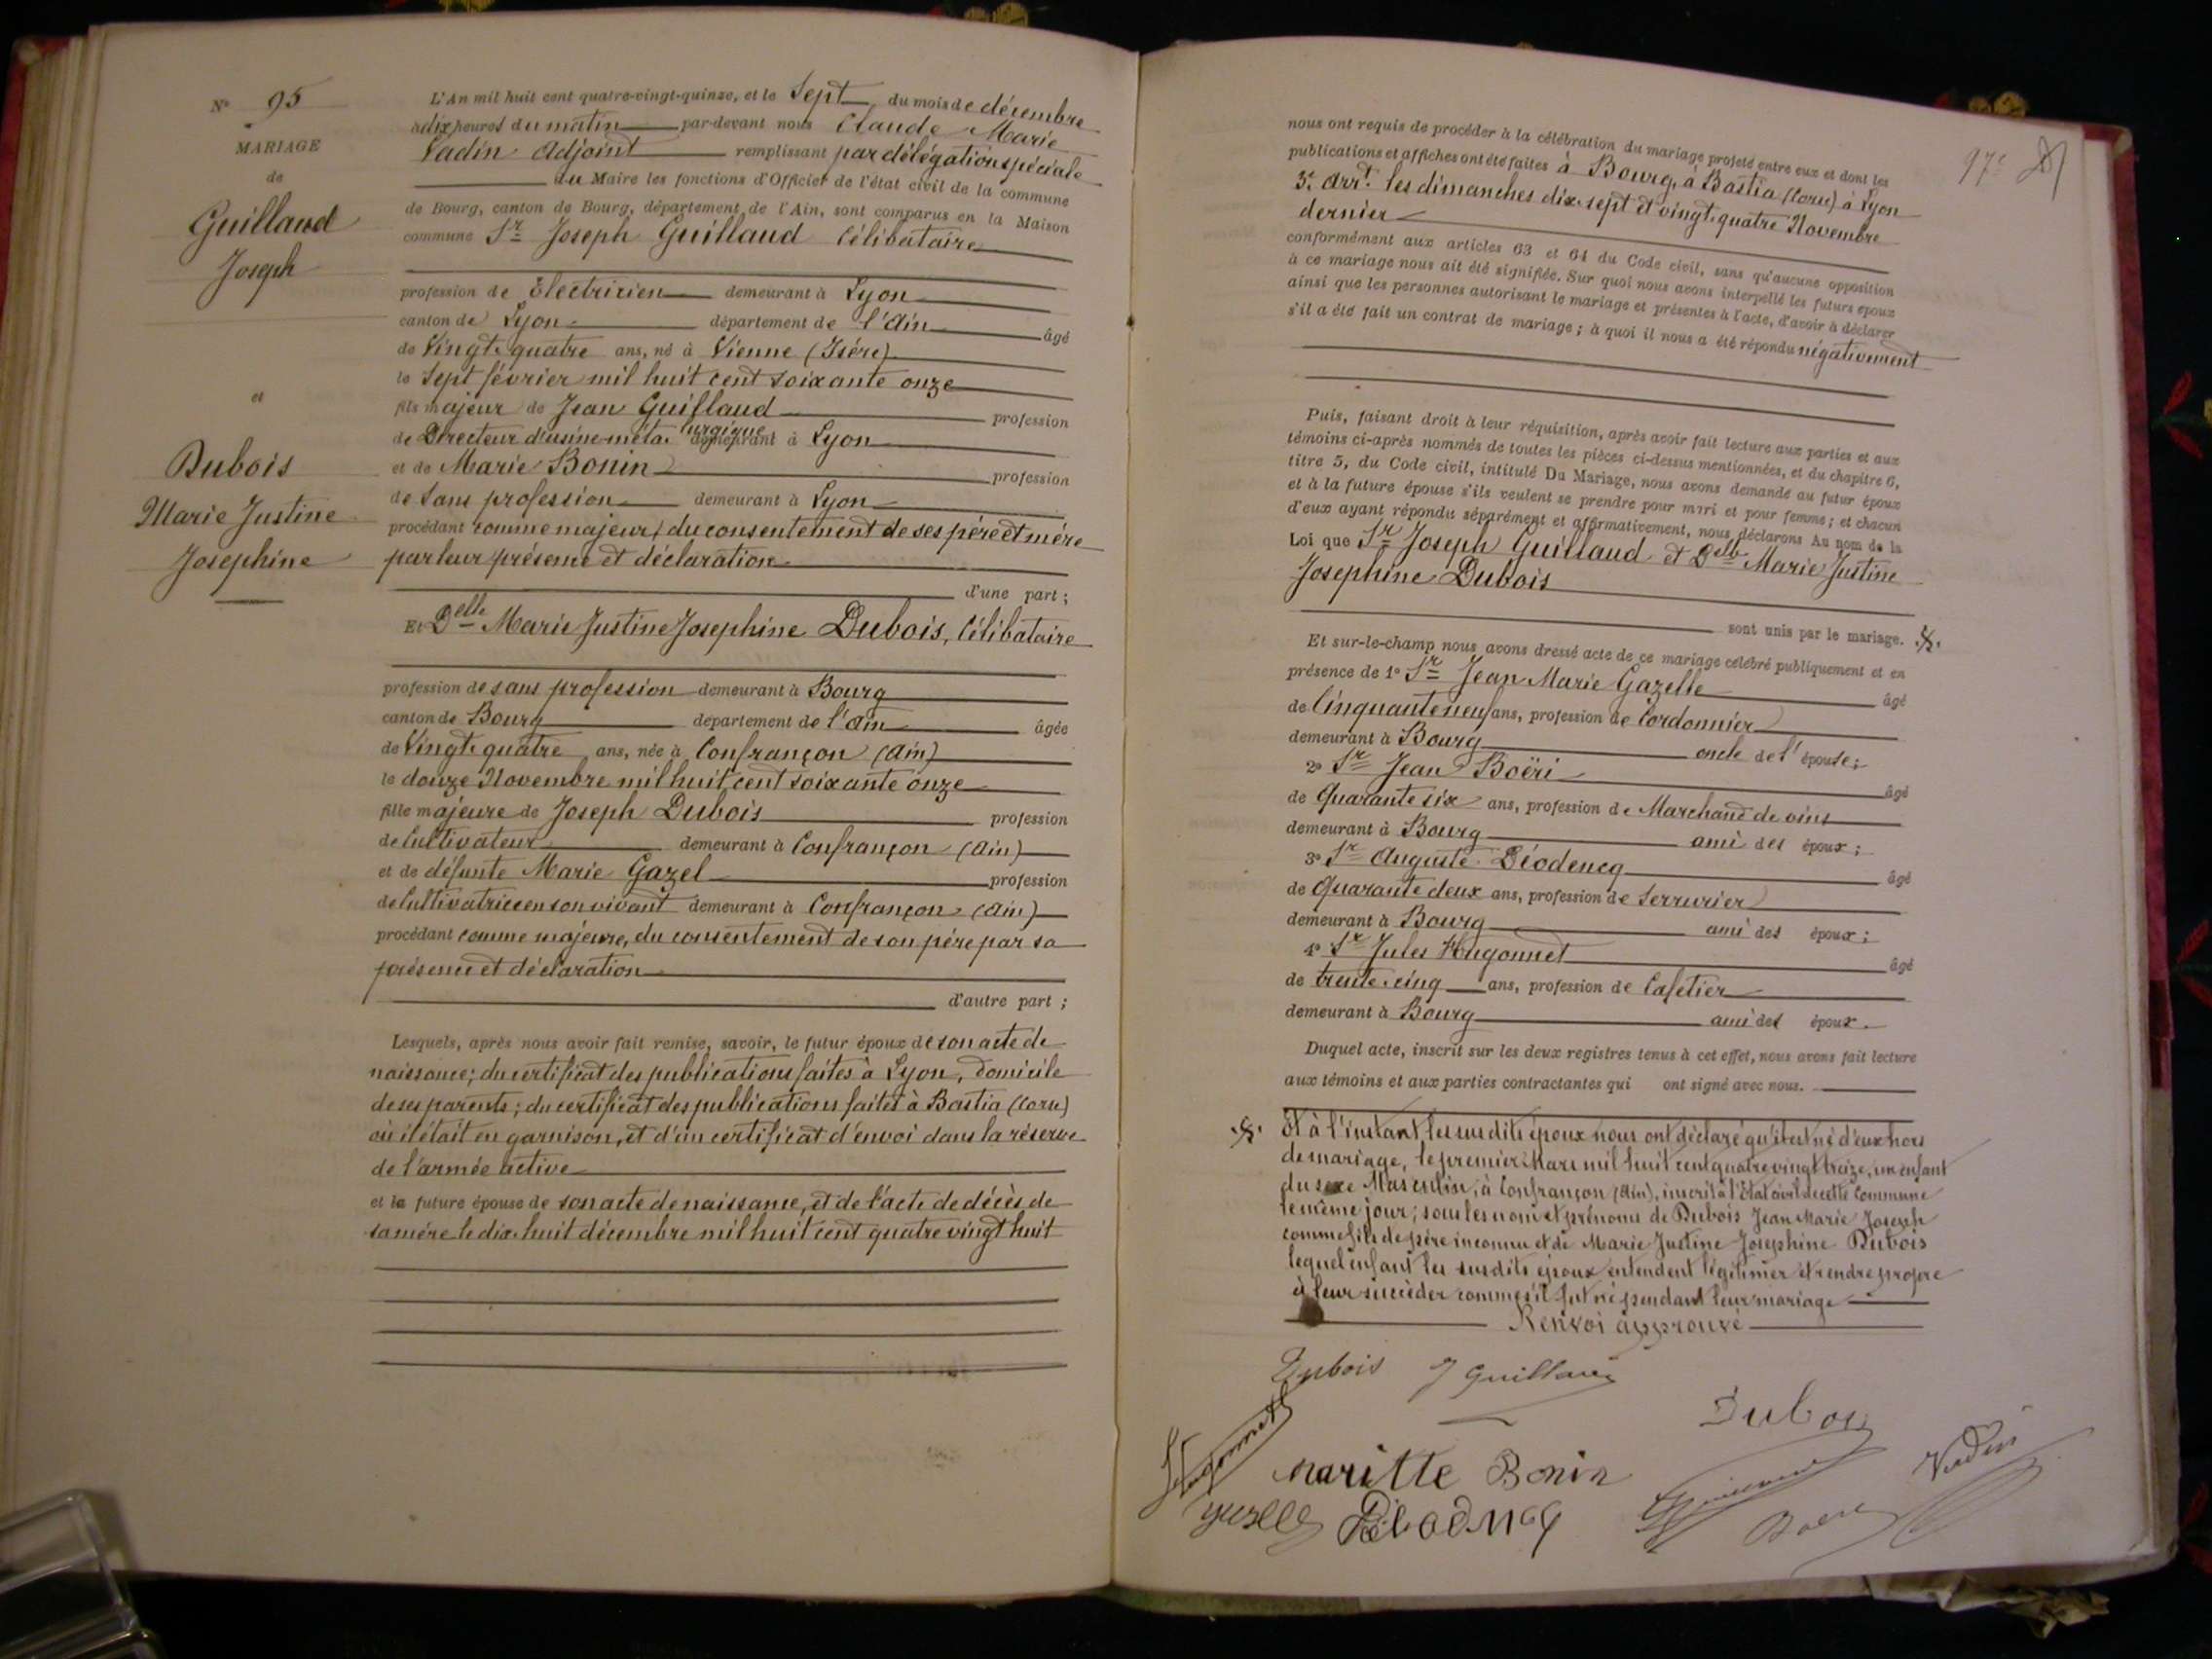 N° 95
MARIAGE
de
Guillaud
Joseph
et
Dubois
Marie Justine
Josephine
L'An mil huit cent quatre-vingt-quinze, et le Sept du mois de décembre
à dix heures du matin par-devant nous Claude Marie
Vadin Adjoint remplissant par délégation spéciale
du Maire les fonctions d'Officier de l'état civil de la commune
de Bourg, canton de Bourg, département de l'Ain, sont comparus en la Maison
commune Sr Joseph Guillaud Célibataire
profession de Electricien demeurant à Lyon
canton de Lyon département de l'Ain âgé
de Vingt-quatre ans, né à Vienne (Isére)
le Sept février mil huit cent soixante onze
fils majeur de Jean Guillaud profession
de Directeur d'usine métallurgique demeurant à Lyon
et de Marie Bonin profession
de Sans profession demeurant à Lyon
procédant comme majeur, du consentement de ses père et mère
par leur présence et déclaration
d'une part ;
Et Delle Marie Justine Josephine Dubois, Célibataire
profession de sans profession demeurant à Bourg
canton de Bourg département de l'Ain âgée
de Vingt-quatre ans, née à Confrançon (Ain)
le douze Novembre mil huit cent soixante onze
fille majeure de Joseph Dubois profession
de Cultivateur demeurant à Confrançon (Ain)
et de défunte Marie Gazel profession
de Cultivatrice en son vivant demeurant à Confrançon (Ain)
procédant comme majeure, du consentement de son père par sa
présence et déclaration
d'autre part ;
Lesquels, après nous avoir fait remise, savoir, le futur époux de son acte de
naissance; du certificat des publications faites à Lyon, domicile
de ses parents; du certificat des publications faites à Bastia (Corse)
où il était en garnison, et d'un certificat d'envoi dans la réserve
de l'armée active
et la future épouse de son acte de naissance, et de l'acte de décès de
sa mère le dix-huit décembre mil huit cent quatre vingt huit
97e
nous ont requis de procéder à la célébration du mariage projeté entre eux et dont les
publications et affiches ont été faites à Bourg, à Bastia (Corse) à Lyon
3e Arrt. les dimanches dix-sept et vingt-quatre Novembre
dernier
conformément aux articles 63 et 64 du Code civil, sans qu'aucune opposition
à ce mariage nous ait été signifiée. Sur quoi nous avons interpellé les futurs époux
ainsi que les personnes autorisant le mariage et présentes à l'acte, d'avoir à déclarer
s'il a été fait un contrat de mariage ; à quoi il nous a été répondu négativement
Puis, faisant droit à leur réquisition, après avoir fait lecture aux parties et aux
témoins ci-après nommés de toutes les pièces ci-dessus mentionnées, et du chapitre 6,
titre 5, du Code civil, intitulé Du Mariage, nous avons demandé au futur époux
et à la future épouse s'ils veulent se prendre pour mari et pour femme ; et chacun
d'eux ayant répondu séparément et affirmativement, nous déclarons Au nom de la
Loi que Sr Joseph Guillaud et Delle Marie Justine
Josephine Dubois
sont unis par le mariage.
Et sur-le-champ nous avons dressé acte de ce mariage célébré publiquement et en
présence de 1° Sr Jean Marie Gazelle âgé
de Cinquante neuf ans, profession de Cordonnier
demeurant à Bourg oncle de l'épouse ;
2° Sr Jean Boëri âgé
de Quarante six ans, profession de Marchand de vins
demeurant à Bourg ami des époux ;
3° Sr Auguste Déodencq âgé
de Quarante deux ans, profession de Serrurier
demeurant à Bourg ami des époux ;
4° Sr Jules Hugonnet âgé
de trente-cinq ans, profession de Cafetier
demeurant à Bourg ami des époux.
Duquel acte, inscrit sur les deux registres tenus à cet effet, nous avons fait lecture
aux témoins et aux parties contractantes qui ont signé avec nous.
Et à l'instant les susdits époux nous ont déclaré qu'il est né d'eux hors
de mariage, le premier Mars mil huit cent quatre vingt treize, un enfant
du sexe Masculin, à Confrançon (Ain), inscrit à l'état civil de cette Commune
le même jour; sous les nom et prénoms de Dubois Jean Marie Joseph
comme fils de père inconnu et de Marie Justine Josephine Dubois
lequel enfant les susdits époux entendent légitimer et rendre propre
à leur succéder comme s'il fut né pendant leur mariage
Renvoi approuvé
Dubois J Guillaud
Dubois
Hugonnet
Mariette Bonin
Vadin
Gazelle Déodencq
Boeri